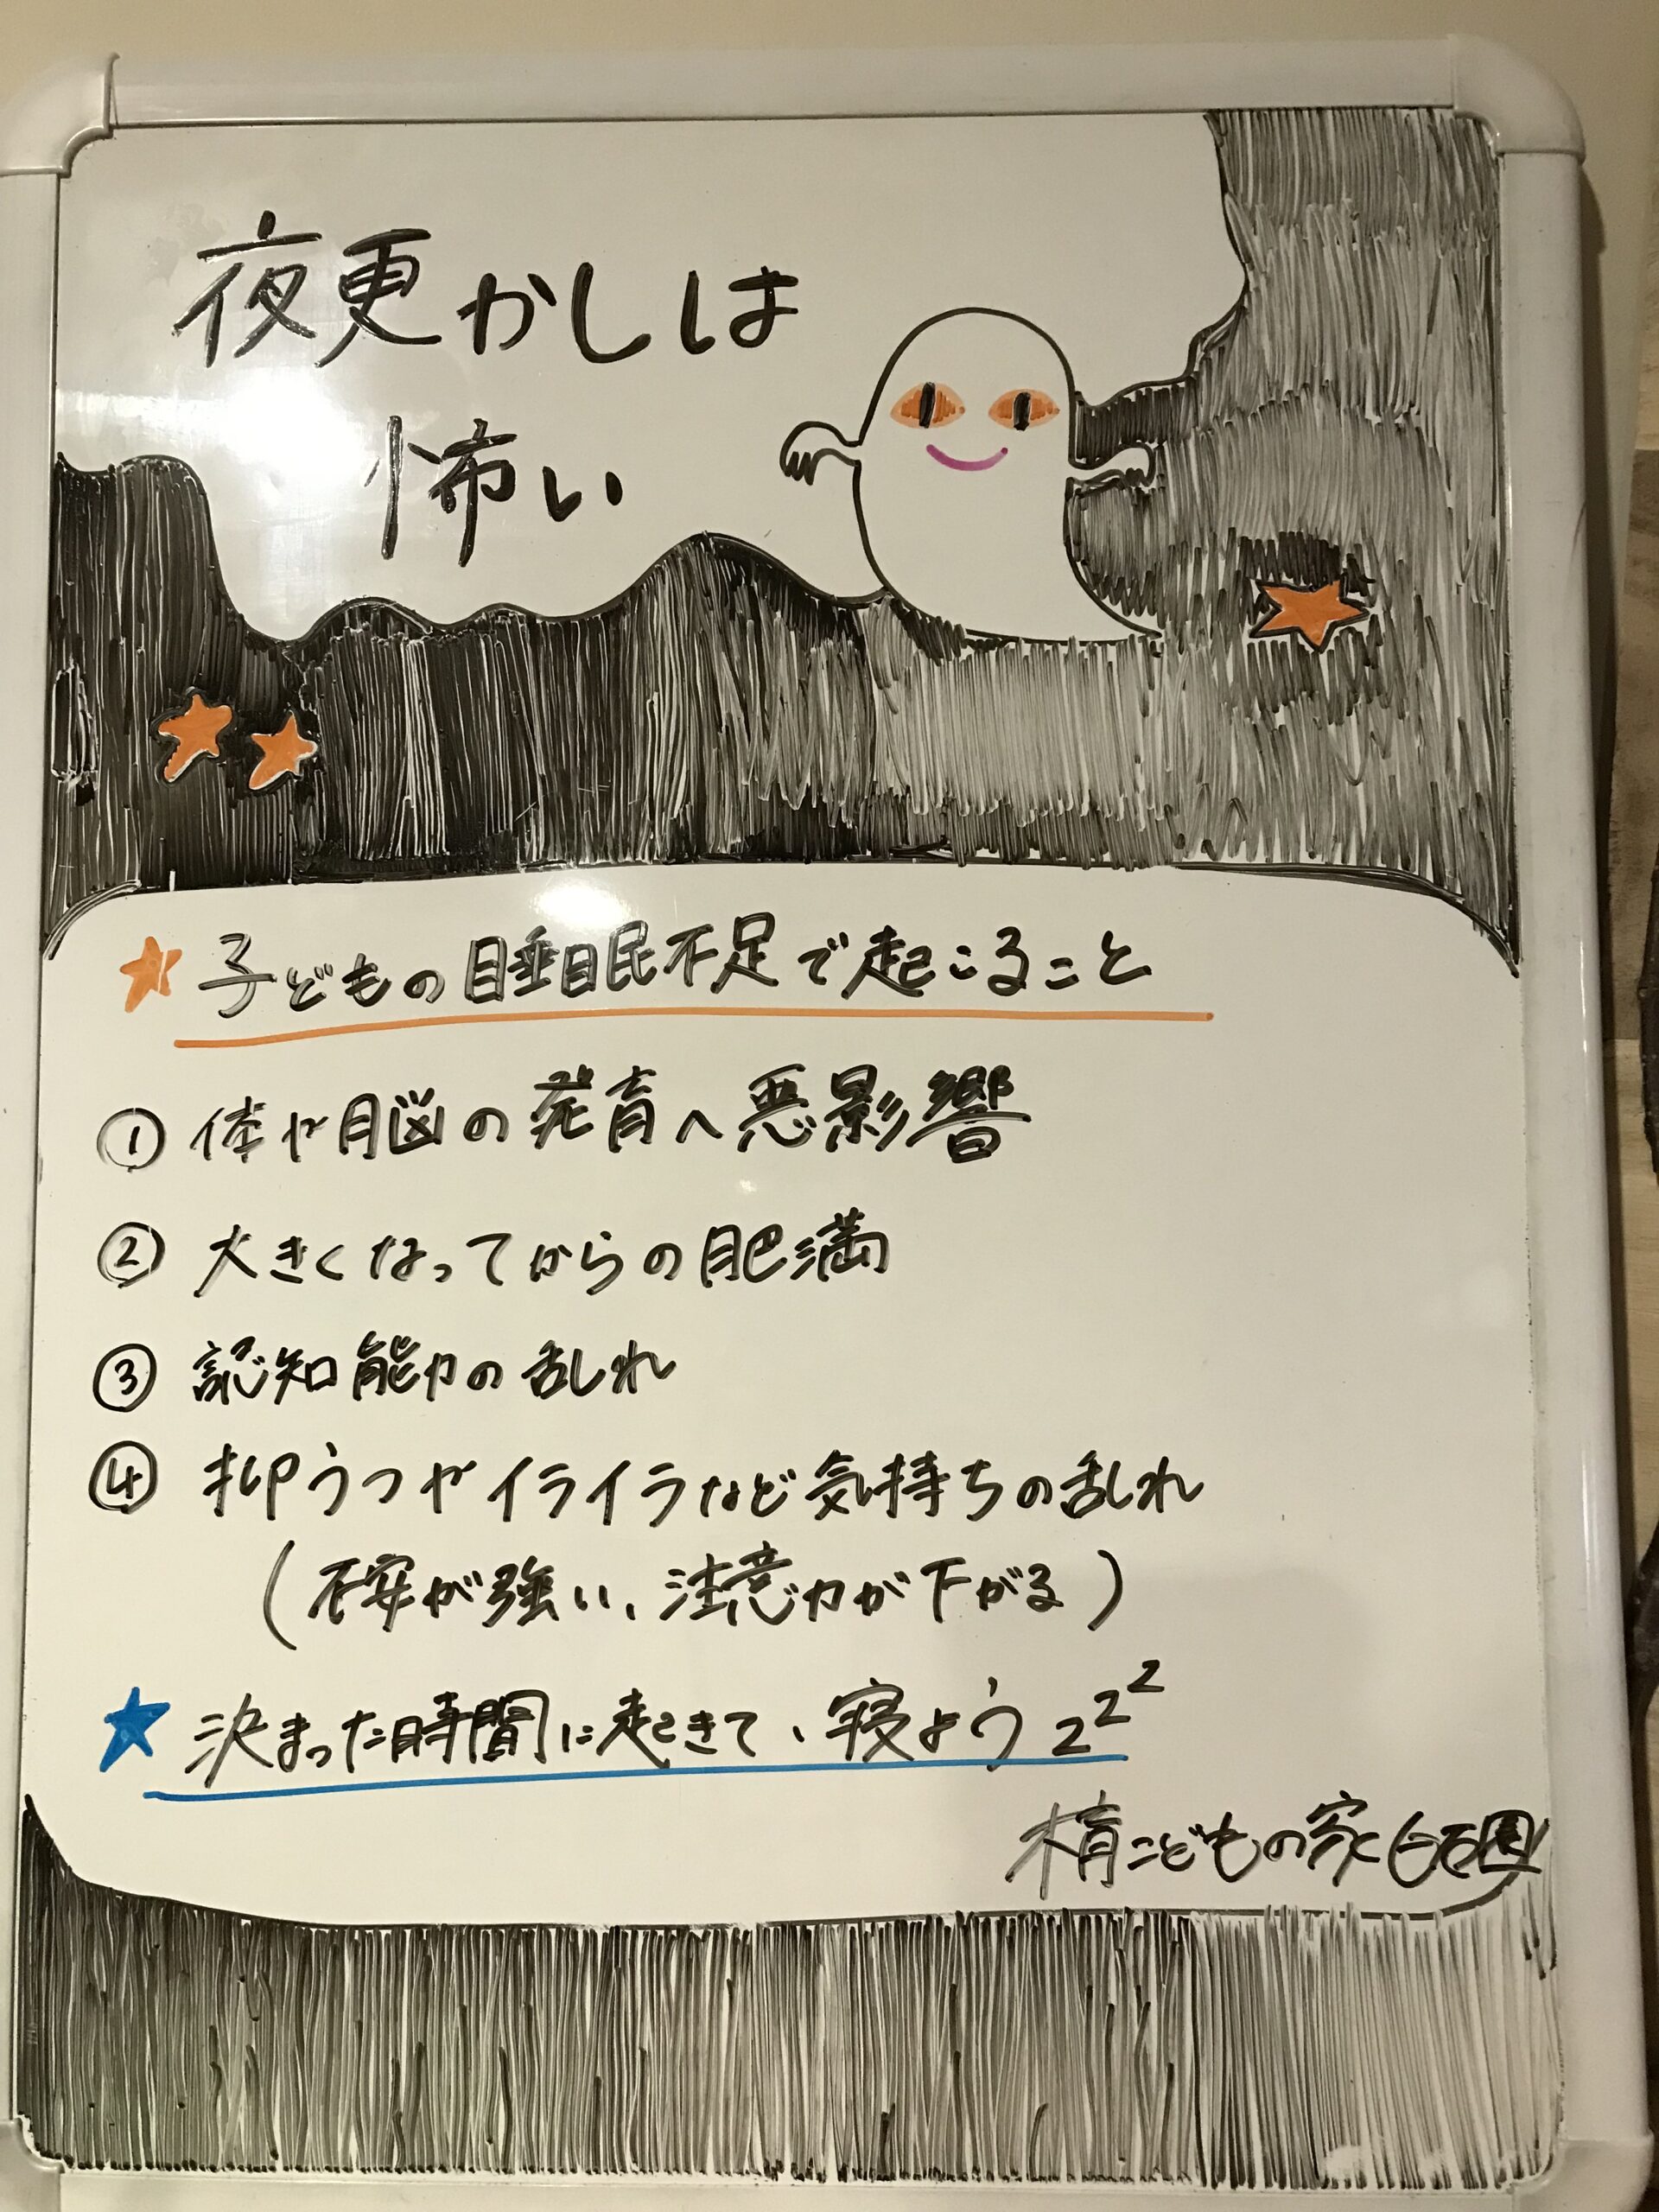 夜更かしは
怖い
子どもの睡眠不足で起こること
① 体や脳の発育へ悪影響
② 大きくなってからの肥満
③ 認知能力の乱れ
④ 抑うつやイライラなど気持ちの乱れ
(不安が強い、注意力が下がる)
決まった時間に起きて、寝よう zzz
こどもの家